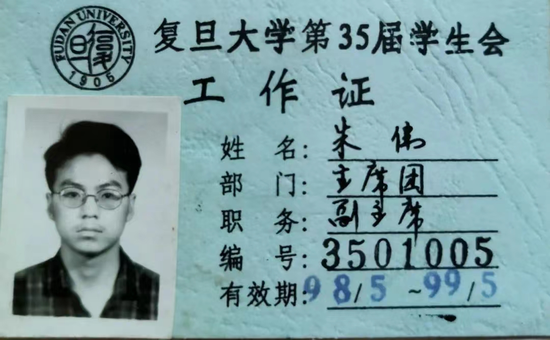 FUDAN UNIVERSITY
1905
复旦大学第35届学生会
工作证
姓 名：朱伟
部 门：主席团
职 务：副主席
编 号：3501005
有效期：98/5 ~99/5